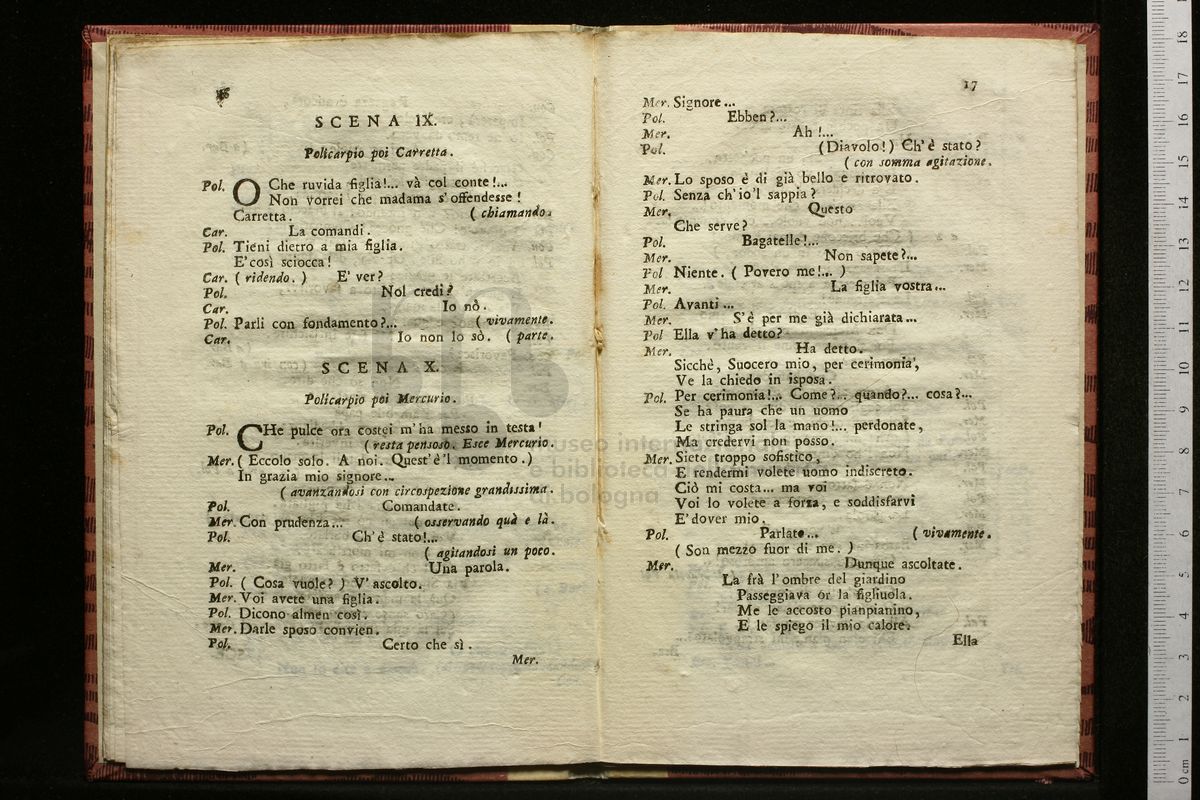 16
SCENA IX.
Policarpio poi Carretta.
Pol. O Che ruvida figlia!... và col conte!...
Non vorrei che madama s'offendesse!
Carretta. ( chiamando.
Car. La comandi.
Pol. Tieni dietro a mia figlia.
E' così sciocca!
Car. ( ridendo. ) E' ver?
Pol. Nol credi?
Car. Io nò.
Pol. Parli con fondamento?... ( vivamente.
Car. Io non lo sò. ( parte.
SCENA X.
Policarpio poi Mercurio.
Pol. CHe pulce ora costei m'ha messo in testa!
( resta pensoso. Esce Mercurio.
Mer. ( Eccolo solo. A noi. Quest'è'l momento. )
In grazia mio signore...
( avanzandosi con circospezione grandissima.
Pol. Comandate.
Mer. Con prudenza... ( osservando quà e là.
Pol. Ch'è stato!...
( agitandosi un poco.
Mer. Una parola.
Pol. ( Cosa vuole? ) V'ascolto.
Mer. Voi avete una figlia.
Pol. Dicono almen così.
Mer. Darle sposo convien.
Pol. Certo che sì.
Mer.
17
Mer. Signore...
Pol. Ebben?...
Mer. Ah!...
Pol. (Diavolo!) Ch'è stato?
( con somma agitazione.
Mer. Lo sposo è di già bello e ritrovato.
Pol. Senza ch'io'l sappia?
Mer. Questo
Che serve?
Pol. Bagatelle!...
Mer. Non sapete?...
Pol Niente. ( Povero me!... )
Mer. La figlia vostra...
Pol. Avanti...
Mer. S'è per me già dichiarata...
Pol Ella v'ha detto?
Mer. Ha detto.
Sicchè, Suocero mio, per cerimonia,
Ve la chiedo in isposa.
Pol. Per cerimonia!... Come?... quando?... cosa?...
Se ha paura che un uomo
Le stringa sol la mano!... perdonate,
Ma credervi non posso.
Mer. Siete troppo sofistico,
E rendermi volete uomo indiscreto.
Ciò mi costa... ma voi
Voi lo volete a forza, e soddisfarvi
E' dover mio.
Pol. Parlate... ( vivamente.
( Son mezzo fuor di me. )
Mer. Dunque ascoltate.
La frà l'ombre del giardino
Passeggiava or la figliuola.
Me le accosto pianpianino,
E le spiego il mio calore.
Ella
museo internazionale
e biblioteca della musica
di bologna
0 cm 1 2 3 4 5 6 7 8 9 10 11 12 13 14 15 16 17 18